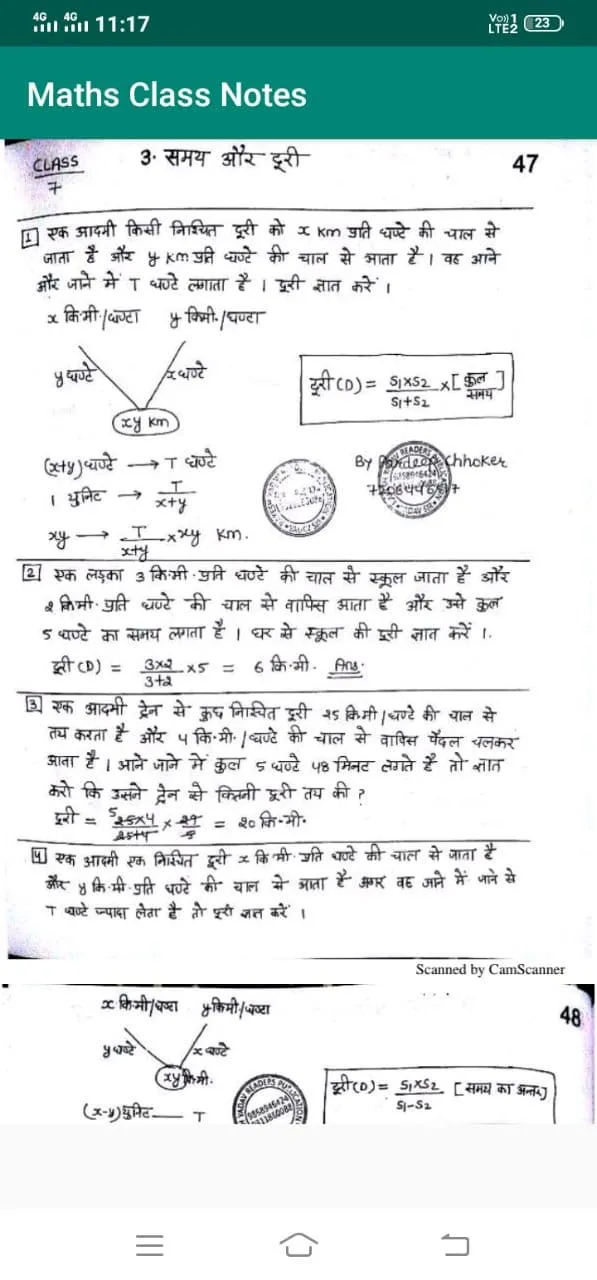 4G 4G 11:17
Vo)) 1 LTE2 23
Maths Class Notes
CLASS 7
3. समय और दूरी
47
1 एक आदमी किसी निश्चित दूरी को x km प्रति घण्टे की चाल से
जाता है और y km प्रति घण्टे की चाल से आता है। वह आने
और जाने में T घण्टे लगाता है। दूरी ज्ञात करें।
x कि.मी./घण्टा y किमी./घण्टा
y घण्टे x घण्टे
दूरी (D) = S1×S2 / S1+S2 × [कुल समय]
xy km
(x+y) घण्टे → T घण्टे
By Pardeep Chhoker
1 युनिट → T / x+y
xy → T / x+y × xy km.
2 एक लड़का 3 कि.मी. प्रति घण्टे की चाल से स्कूल जाता है और
2 किमी. प्रति घण्टे की चाल से वापिस आता है और उसे कुल
5 घण्टे का समय लगता है। घर से स्कूल की दूरी ज्ञात करें।.
दूरी (D) = 3×2 / 3+2 ×5 = 6 कि.मी. Ans.
3 एक आदमी ट्रेन से कुछ निश्चित दूरी 25 किमी/घण्टे की चाल से
तय करता है और 4 कि.मी./घण्टे की चाल से वापिस पैदल चलकर
आता है। आने जाने में कुल 5 घण्टे 48 मिनट लगते है तो ज्ञात
करो कि उसने ट्रेन से कितनी दूरी तय की ?
दूरी = 25×4 / 25+4 × 29 / 5 = 20 कि.मी.
4 एक आदमी एक निश्चित दूरी x कि.मी. प्रति घण्टे की चाल से जाता है
और y कि.मी. प्रति घण्टे की चाल से आता है अगर वह आने में जाने से
T घण्टे ज्यादा लेता है तो दूरी ज्ञात करें।
Scanned by CamScanner
x किमी/घण्टा y किमी/घण्टा
48
y घण्टे x घण्टे
xy कि.मी.
दूरी (D) = S1×S2 / S1-S2 [समय का अन्तर]
(x-y) युनिट — T